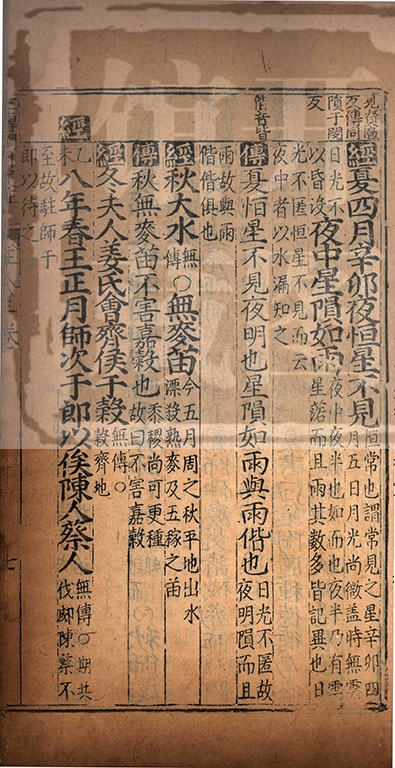 見賢遍
反傳同
隕于閔
反
經夏四月辛卯夜恒星不見恒常也謂常見之星辛卯四
月五日月光尚微蓋時無雲
日光不
以昏沒
夜中星隕如雨夜中夜半也如而也夜半乃有雲
星落而且雨其數多皆記異也日
光不匿恒星不見而云
夜中者以水漏知之
偕音皆
傳夏恒星不見夜明也星隕如雨與雨偕也日光不匿故
夜明隕而且
雨故與雨
偕偕俱也
經秋大水無傳○無麥苗今五月周之秋平地出水
漂殺熟麥及五稼之苗
傳秋無麥苗不害嘉穀也黍稷尚可更種
故曰不害嘉穀
經冬夫人姜氏會齊侯于穀無傳○
穀齊地
經乙未八年春王正月師次于郎以俟陳人蔡人無傳○期共
伐郕陳蔡不
至故駐師于
郎以待之